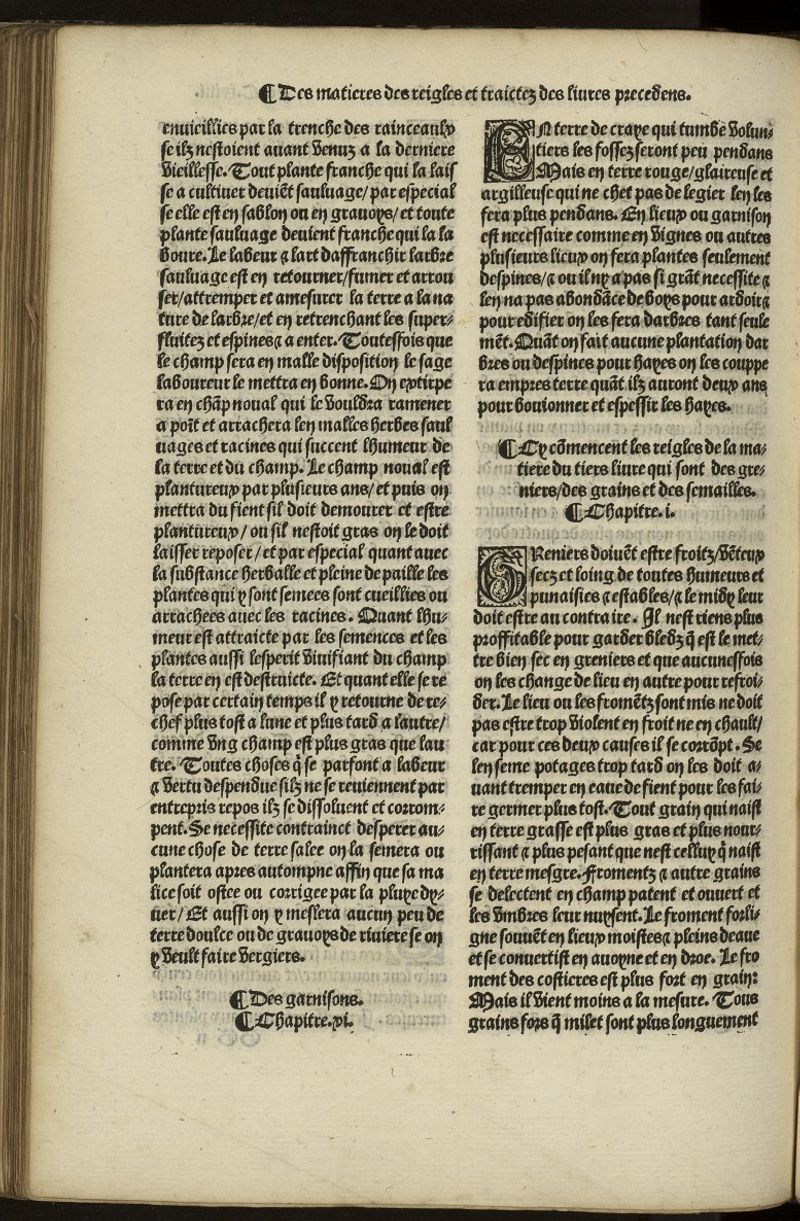 ¶Des matieres des reigles et traictez des liures precedens.
enuieillies par la trenche des rainceaulx
se ilz nestoient auant venuz a la derniere
vieillesse. Tout plante franche qui la lais
se a cultiuer deuiēt sauluage/ par especial
se elle est en sablon ou en grauoys/ et toute
plante sauluage deuient franche qui la la
boure. Le labeur ⁊ lart daffranchir larbre
sauluage est en retourner/fumer et arrou
ser/attremper et amesurer la terre a la na
ture de larbre/et en retrenchant les super⸗
fluitez et espines⁊ a enter. Toutesfois que
le champ sera en malle disposition le sage
laboureur le mettra en bonne. On extirpe
ra en chāp noual qui le vouldra ramener
a poīt et arrachera len malles herbes saul
uages et racines qui succent lhumeur de
la terre et du champ. Le champ noual est
plantureux par plusieurs ans/ et puis on
mettra du fient sil doit demourer et estre
plantureux/ ou sil nestoit gras on le doit
laisser reposer/ et par especial quant auec
la substance herballe et pleine de paille les
plantes qui y sont semees sont cueillies ou
arrachees auec les racines. Quant lhu⸗
meur est attraicte par les semences et les
plantes aussi lesperit viuifiant du champ
la terre en est destruicte. Et quant elle se re
pose par certain temps il y retourne de re⸗
chef plus tost a lune et plus tard a lautre/
comme vng champ est plus gras que lau
tre. Toutes choses q̄ se parfont a labeur
⁊ vertu despendue silz ne se reuiennent par
entrepris repos ilz se dissoluent et corrom⸗
pent. Se necessite contrainct desperer au⸗
cune chose de terre salee on la semera ou
plantera apres autompne affin que sa ma
lice soit ostee ou corrigee par la pluye dy⸗
uer/ Et aussi on y meslera aucun peu de
terre doulce ou de grauoys de riuiere se on
y veult faire vergiers.
¶Des garnisons.
¶Chapitre.xi.
EN terre de craye qui tumbe volun⸗
tiers les fossez seront peu pendans
Mais en terre rouge/glaireuse et
argilleuse qui ne chet pas de legier len les
fera plus pendans. En lieux ou garnison
est necessaire comme en vignes ou autres
plusieurs lieux on fera plantes seulement
despines/⁊ ou il ny a pas si grāt necessite ⁊
len na pas abondāce de boys pour ardoir⁊
pour edifier on les fera darbres tant seule
mēt. Quāt on fait aucune plantation dar
bres ou despines pour hayes on les couppe
ra empres terre quāt ilz auront deux ans
pour bouionner et espessir les hayes.
¶Cy cōmencent les reigles de la ma⸗
tiere du tiers liure qui sont des gre⸗
niers/des grains et des semailles.
¶Chapitre.i.
GReniers doiuēt estre froitz/vēteux
secz et loing de toutes humeurs et
punaisies ⁊ estables/⁊ le midy leur
doit estre au contraire. Il nest riens plus
proffitable pour garder bledz q̄ est le met⸗
tre bien sec en greniers et que aucunesfois
on les change de lieu en autre pour refroi⸗
der. Le lieu ou les fromētz sont mis ne doit
pas estre trop violent en froit ne en chault/
car pour ces deux causes il se corrōpt. Se
len seme potages trop tard on les doit a⸗
uant tremper en eaue de fient pour les fai⸗
re germer plus tost. Tout grain qui naist
en terre grasse est plus gras et plus nour⸗
rissant ⁊ plus pesant que nest celluy q̄ naist
en terre mesgre. Fromentz ⁊ autre grains
se delectent en champ patent et ouuert et
les vmbres leur nuysent. Le froment forli⸗
gne souuēt en lieux moistes⁊ pleins deaue
et se conuertist en auoyne et en droe. Le fro
ment des costieres est plus fort en grain:
Mais il vient moins a la mesure. Tous
grains fors q̄ milet sont plus longuement